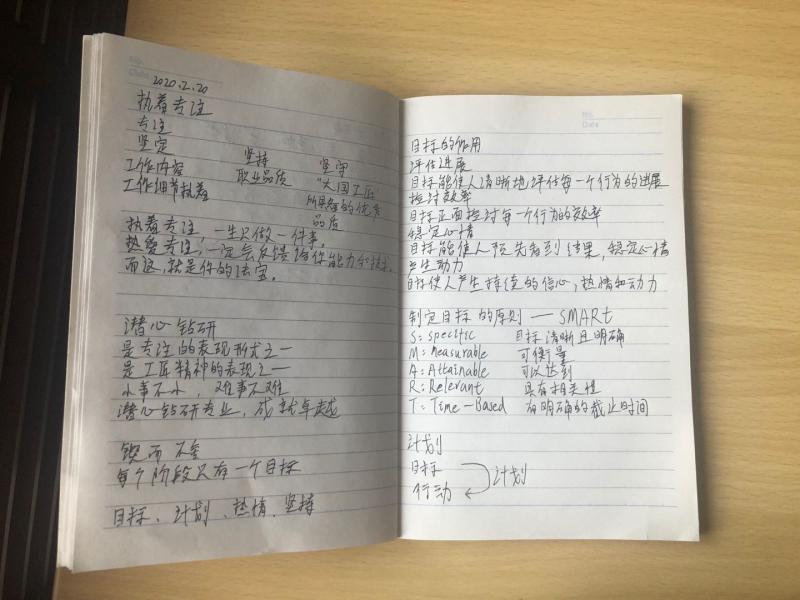 No.
Date
2020.2.20
执着专注
专注
坚定 坚持 坚守
工作内容 职业品质 "大国工匠"
工作细节执着 所具备的优秀
品质
执着专注 一生只做一件事。
热爱专注,一定会反馈给你能力和技术,
而这,就是你的法宝。
潜心钻研
是专注的表现形式之一
是工匠精神的表现之一
水事不水,难事不难
潜心钻研专业,成就卓越
锲而不舍
每个阶段只有一个目标
目标、计划、热情、坚持
No.
Date
目标的作用
评估进展
目标能使人清晰地评估每一个行为的进展
检讨效率
目标正面检讨每一个行为的效率
稳定心情
目标能使人预先看到结果,稳定心情
产生动力
目标使人产生持续的信心,热情和动力
制定目标的原则 — SMARt
S:specific 目标清晰且明确
M:Measurable 可衡量
A:Attainable 可以达到
R:Relevant 具有相关性
T:Time-Based 有明确的截止时间
计划
目标
行动 计划